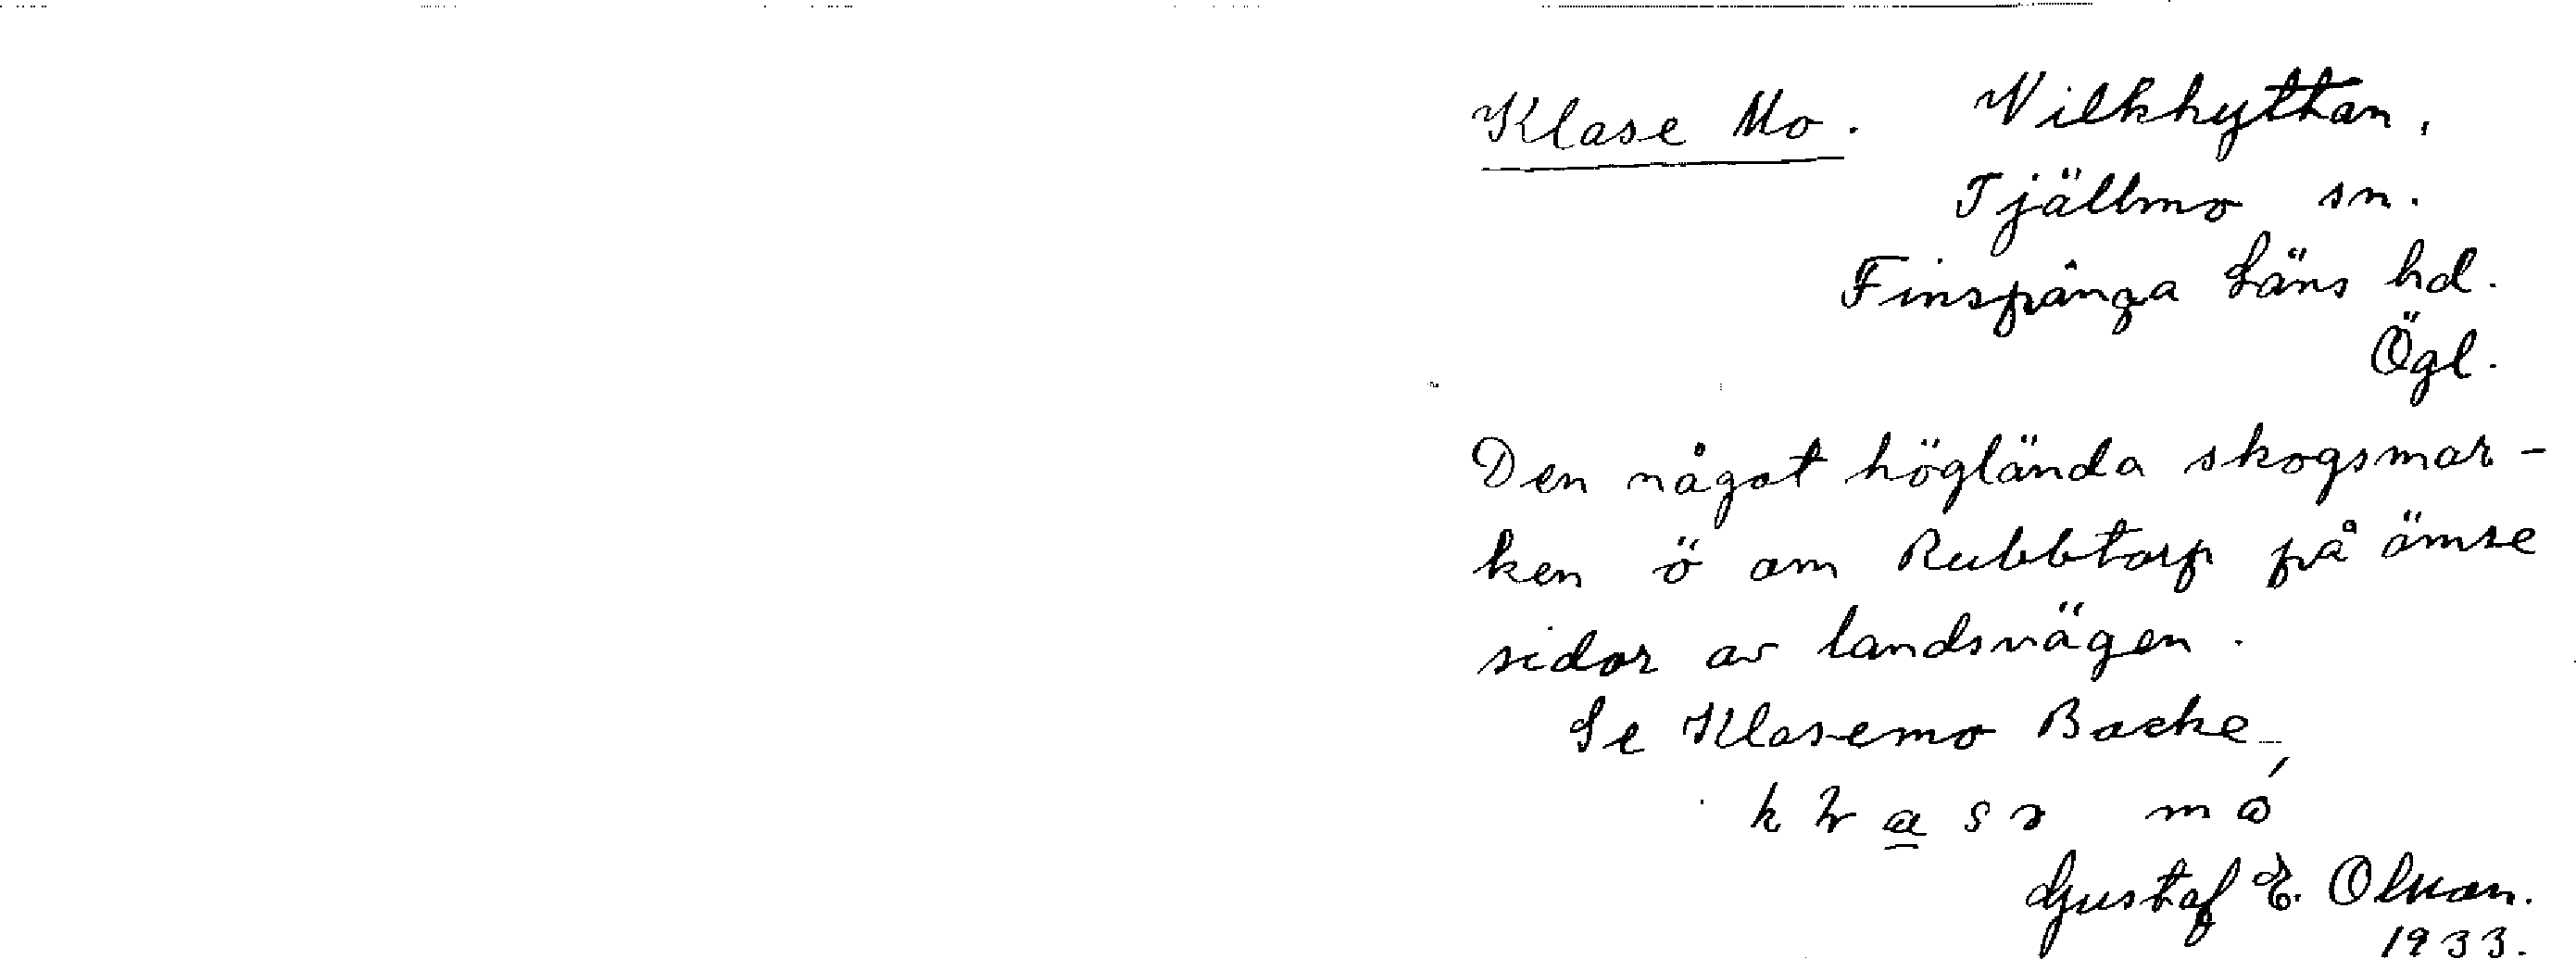 Klase Mo. Vilkhyttan,
Tjällmo sn.
Finspånga Läns hd.
Ögl.
Den något höglända skogsmar-
ken ö om Rubbtorp på ömse
sidor av landsvägen.
Se Klasemo Backe
Gustaf E. Olsson.
1933.